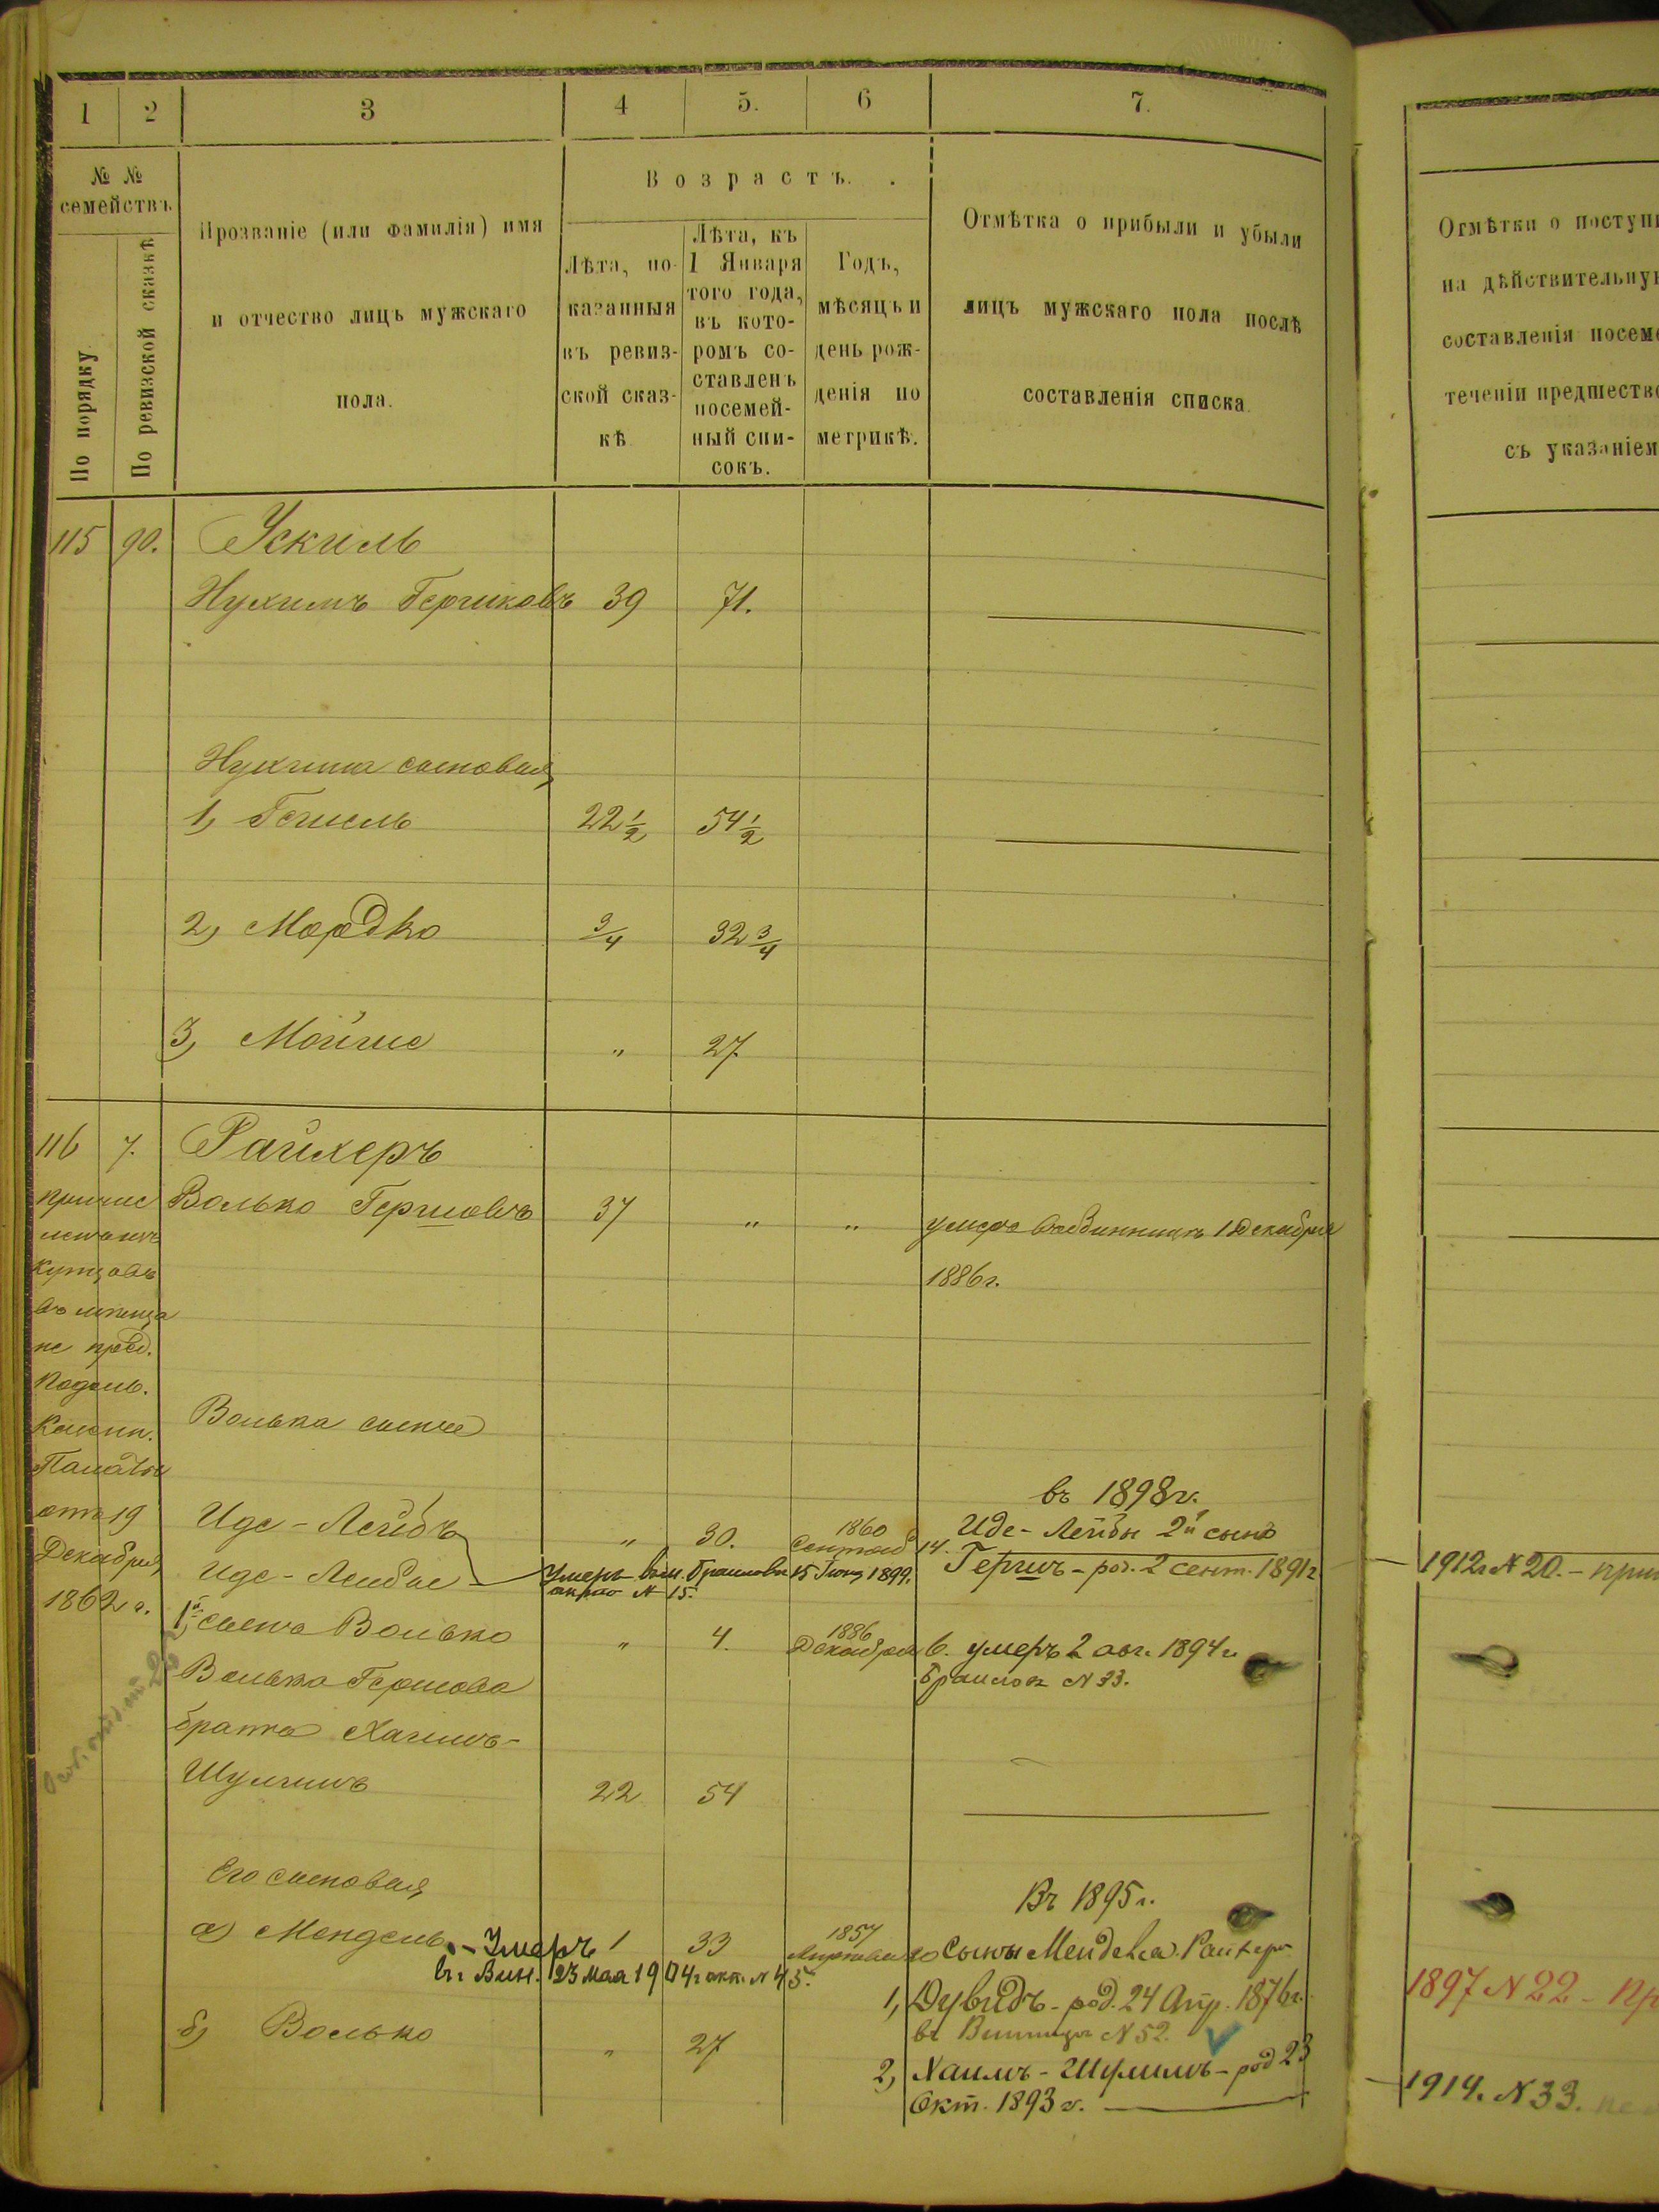 1 2 3 4 5. 6 7.
№ № семействъ
По порядку
По ревизской сказкѣ
Прозваніе (или фамилія) имя
и отчество лицъ мужскаго
пола.
Возрастъ.
Лѣта, по-
казанныя
въ ревиз-
ской сказ-
кѣ
Лѣта, къ
1 Января
того года,
въ кото-
ромъ со-
ставленъ
посемей-
ный спи-
сокъ.
Годъ,
мѣсяцъ и
день рож-
денія по
метрикѣ.
Отмѣтка о прибыли и убыли
лицъ мужскаго пола послѣ
составленія списка.
115 90. Ускиль
Нухимъ Гершковъ 39 71.
Нухима сыновья
1, Гершель 22 1/2 54 1/2
2, Мордко 3/4 32 3/4
3, Мойше " 27
116 7. Райхеръ
Волько Гершовъ 37 " " умеръ въ Винницѣ 1 Декабря
1886 г.
купцовъ
въ мѣща
не пред.
Подоль.
Казен.
Палаты
отъ 19
Декабря
1862 г.
Волька сынъ
въ 1898 г.
Иде-Лейбъ " 30. 1860 Сентяб 14. Иде-Лейбы 2й сынъ
Гершъ - род. 2 сент. 1891 г
Иде-Лейбы Умеръ въ м. Браиловѣ 15 Іюня 1899.
актъ N 15.
1й сынъ Волько " 4. 1886 Декабря 6. умеръ 2 авг. 1894 г.
Браиловъ N 33.
Волька Гершова
братъ Хаимъ-
Шулимъ 22 54
Его сыновья
Въ 1895 г.
а) Мендель - Умеръ 1 33 1857 10 Сыны Менделя Райхеръ
въ г. Вин. 23 Мая 1904 г. акт. N 45.
1, Дувидъ - род. 24 Апр. 1876 г.
въ Винницѣ N 52.
б) Волько " 27
2, Хаимъ-Шулимъ - род 23
Окт. 1893 г.
Отмѣтки о поступ
на дѣйствительную
составленія посеме
теченіи предшество
съ указаніем
1912 г. N 20. - при
1897 N 22 - Пр
1914. N 33.